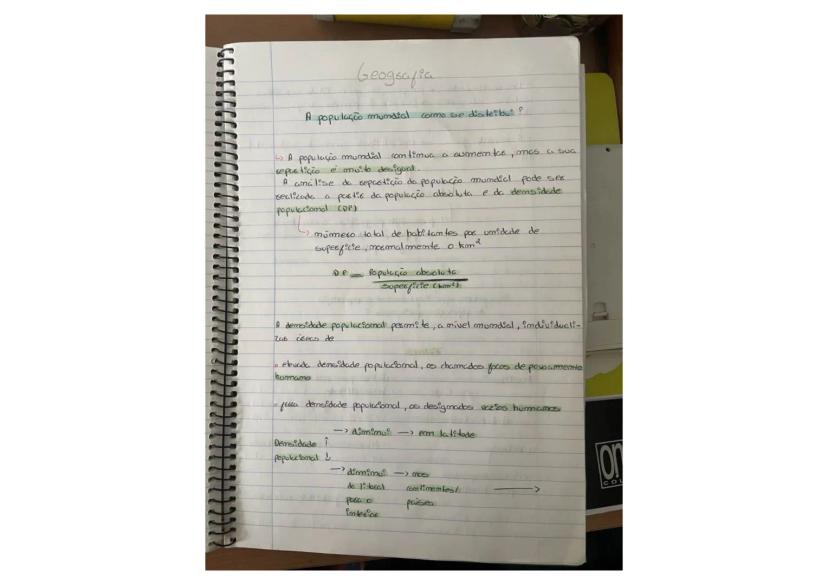 Geografia
A população mundial como se distribui?
↳ A população mundial continua a aumentar, mas a sua
repartição é muito desigual.
A análise da repartição da população mundial pode ser
realizada a partir da população absoluta e da densidade
populacional (DP)
↳ número total de habitantes por unidade de
superfície, normalmente o km²
DP = População absoluta
Superfície (km²)
A densidade populacional permite, a nível mundial, individuali-
zar áreas de
elevada densidade populacional, os chamados focos de povoamento
humano
densidade populacional, os designados vazios humanos
→ diminui → em latitude
Densidade ↑
populacional ↓
→ diminui → nos
do litoral continentes/ →
para o países
interior
ON
COL